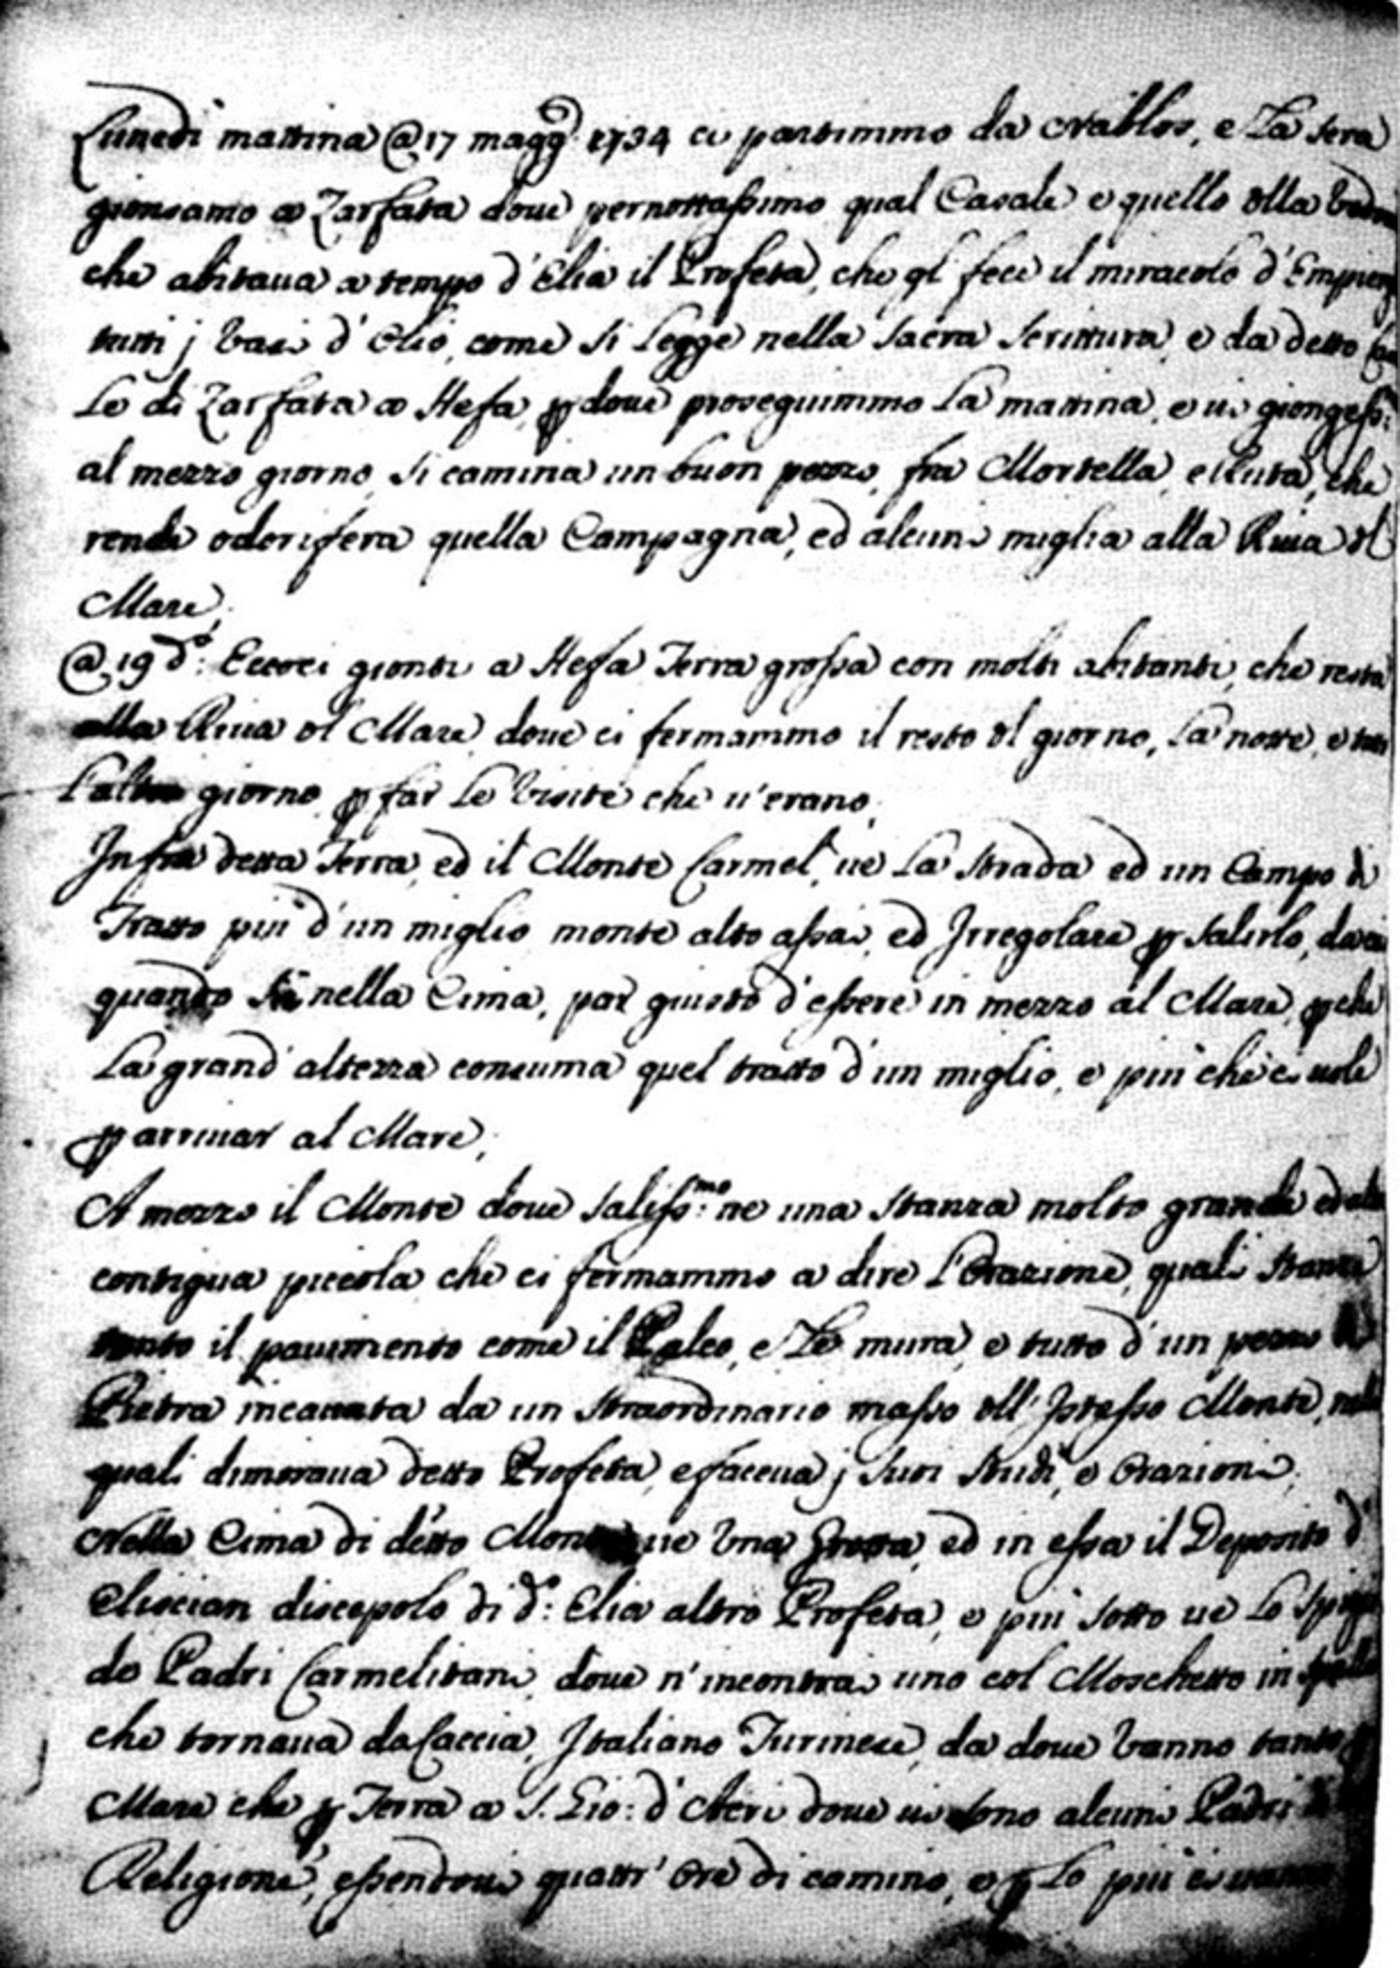 Lunedì mattina @ 17 magg.º 1734 ci partimmo da Nablos, e La sera
gionsamo a Zarfata doue pernottassimo qual Casale e quello dlla
che abitaua a tempo d'Elia il Profeta, che gl fece il miracolo d'Empier
tutti j Vasi d'Olio, come si Legge nella Sacra Scrittura, e da detto Casa
Le di Zarfata a Hefa, p doue proseguimmo La mattina, e ui giongess:
al mezzo giorno, si camina un buon pezzo, fra Mortella, e Ruta, che
rende odorifera quella Campagna, ed alcune miglia alla Riua dl
Mare;
@ 19 dº: Eccoci gionti a Hefa Terra grossa con molti abitanti, che resta
alla Riua dl Mare, doue ci fermammo il resto dl giorno, La notte, e tutt
L'altro giorno p far Le Visite che u'erano;
Infra detta Terra, ed il Monte Carmel, ue La Strada ed un Campo di
Tratto più d'un miglio monte alto assai, ed Irregolare p Salirlo, da cui
quando nella Cima, par giusto d'essere in mezzo al Mare, p che
La grand'altezza consuma quel tratto d'un miglio, e più che ci uole
p arriuar al Mare;
A mezzo il Monte doue Saliss:mo ne una Stanza molto grande ed
contigua piccola che ci fermammo a dire L'Orazione, quali Stanze
tanto il pauimento come il Palco, e Le mura, e tutto d'un pezzo di
Pietra incauata da un straordinario masso dll'Istesso Monte, nelle
quali dimoraua detto Profeta, e faceua j Suoi Studi, e Orazioni;
Nella Cima di detto Monte ue Vna Grotta, ed in essa il Deposito d'
Eliscian discepolo di dº: Elia altro Profeta, e più Sotto ue Lo
de Padri Carmelitani, doue n'incontrai uno col Moschetto in spalla
che tornaua da Caccia, Italiano Turinese, da doue Vanno tanto p
Mare che p Terra a S. Gio: d'Acri doue ui sono alcuni Padri di
Religione, essendoui quattr'Ore di camino, e p Lo più